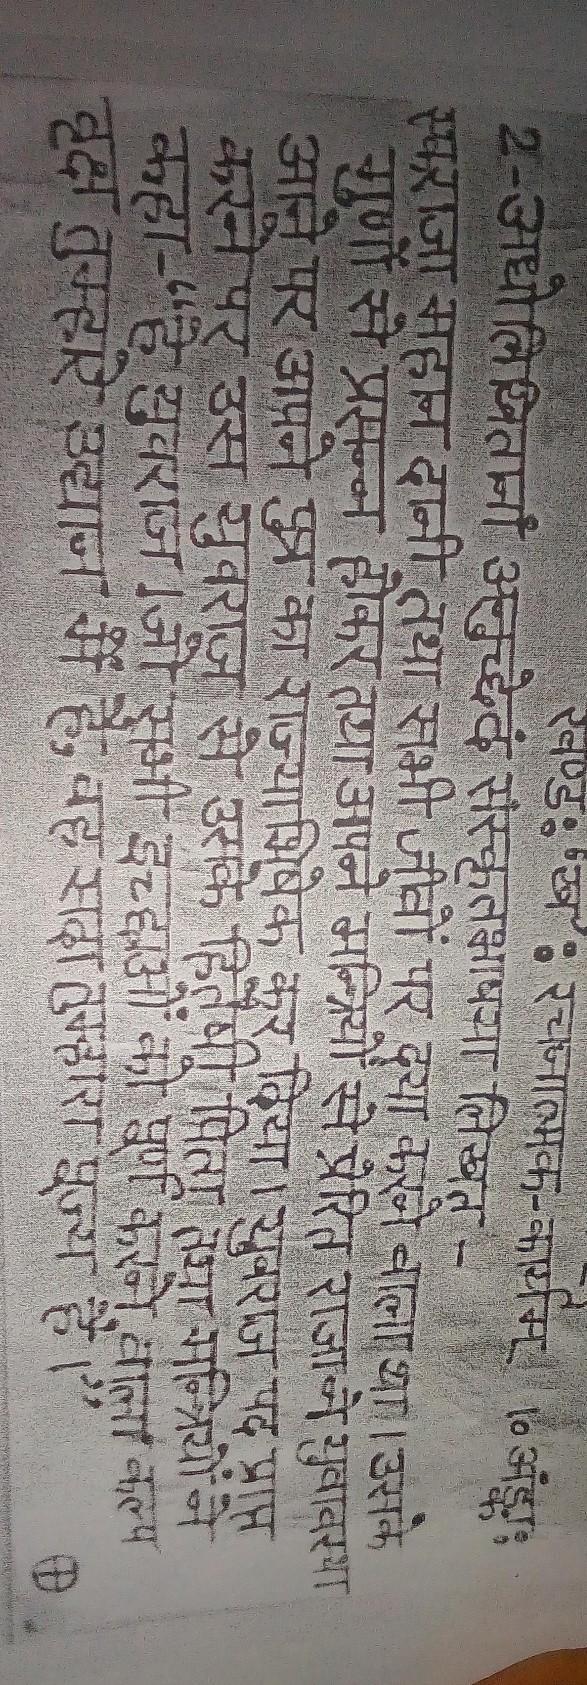 खण्डः "ख" : रचनात्मक-कार्यम् १० अंकाः
2-अधोलिखितानां अनुच्छेदं संस्कृतभाषया लिखत -
एक राजा महान दानी तथा सभी जीवों पर दया करने वाला था। उसके
गुणों से प्रसन्न होकर तथा अपने मन्त्रियों से प्रेरित राजा ने युवावस्था
आने पर अपने पुत्र का राज्याभिषेक कर दिया। युवराज पद प्राप्त
करने पर उस युवराज से उसके हितैषी पिता तथा मन्त्रियों ने
कहा-"हे युवराज। जो सभी इच्छाओं को पूर्ण करने वाला कल्प
वृक्ष तुम्हारे उद्यान में है, वह सदा तुम्हारा पूज्य है।"